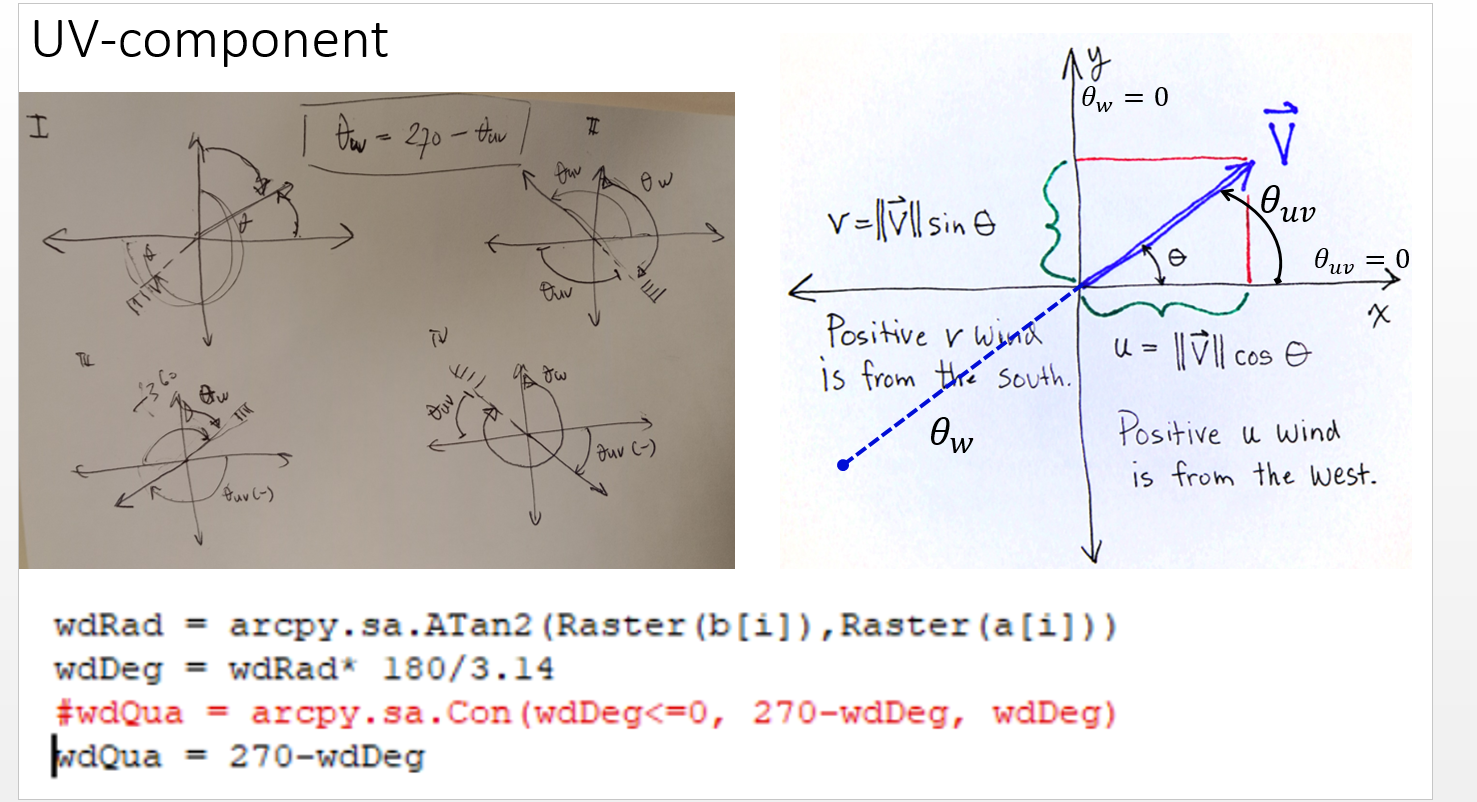 UV-component
I
θuv = 270 - θuv
II
θuv
θw
θ
θ
θuv
III
360
θw
θuv (-)
IV
θw
θuv
θuv (-)
y
θw = 0
V
V = ||V|| sin θ
θuv
θ
θuv = 0
x
Positive v wind
is from the south.
u = ||V|| cos θ
θw
Positive u wind
is from the west.
wdRad = arcpy.sa.ATan2(Raster(b[i]),Raster(a[i]))
wdDeg = wdRad* 180/3.14
#wdQua = arcpy.sa.Con(wdDeg<=0, 270-wdDeg, wdDeg)
wdQua = 270-wdDeg